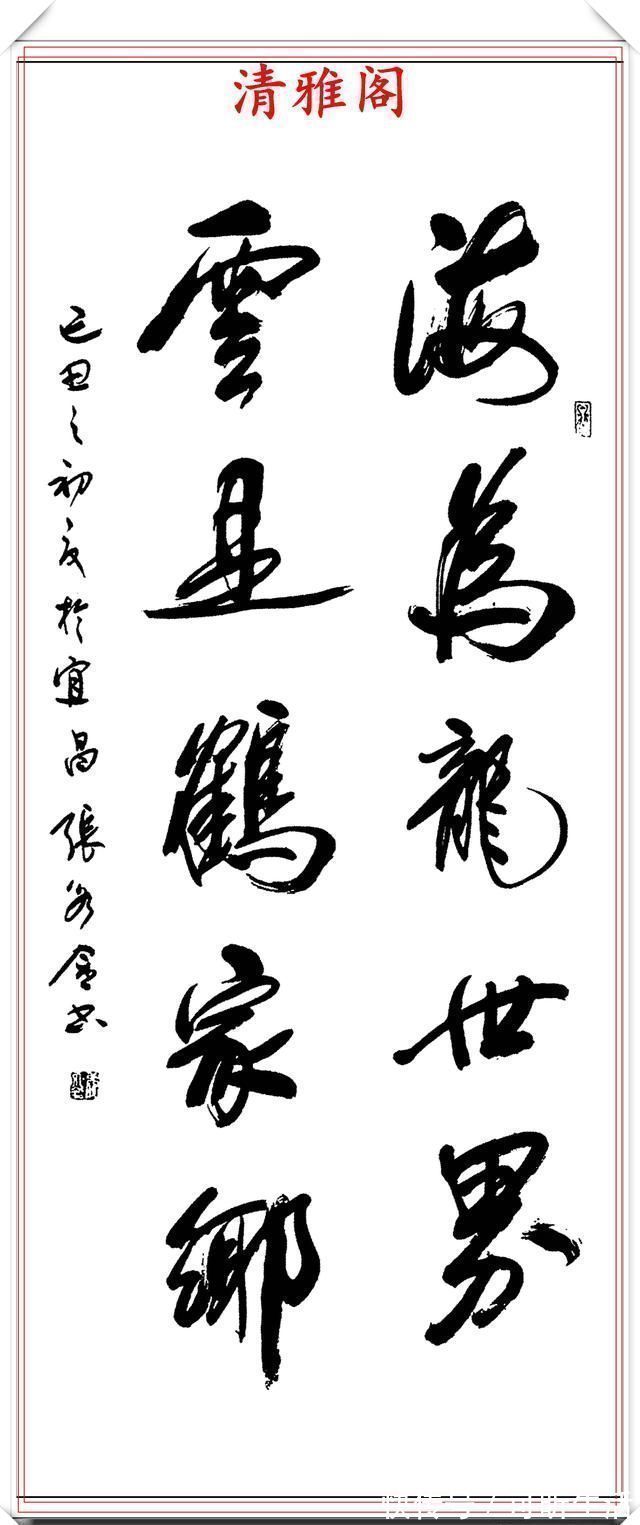 清雅阁
海為龍世界
雲是鶴家鄉
己丑之初夏於宜昌張書